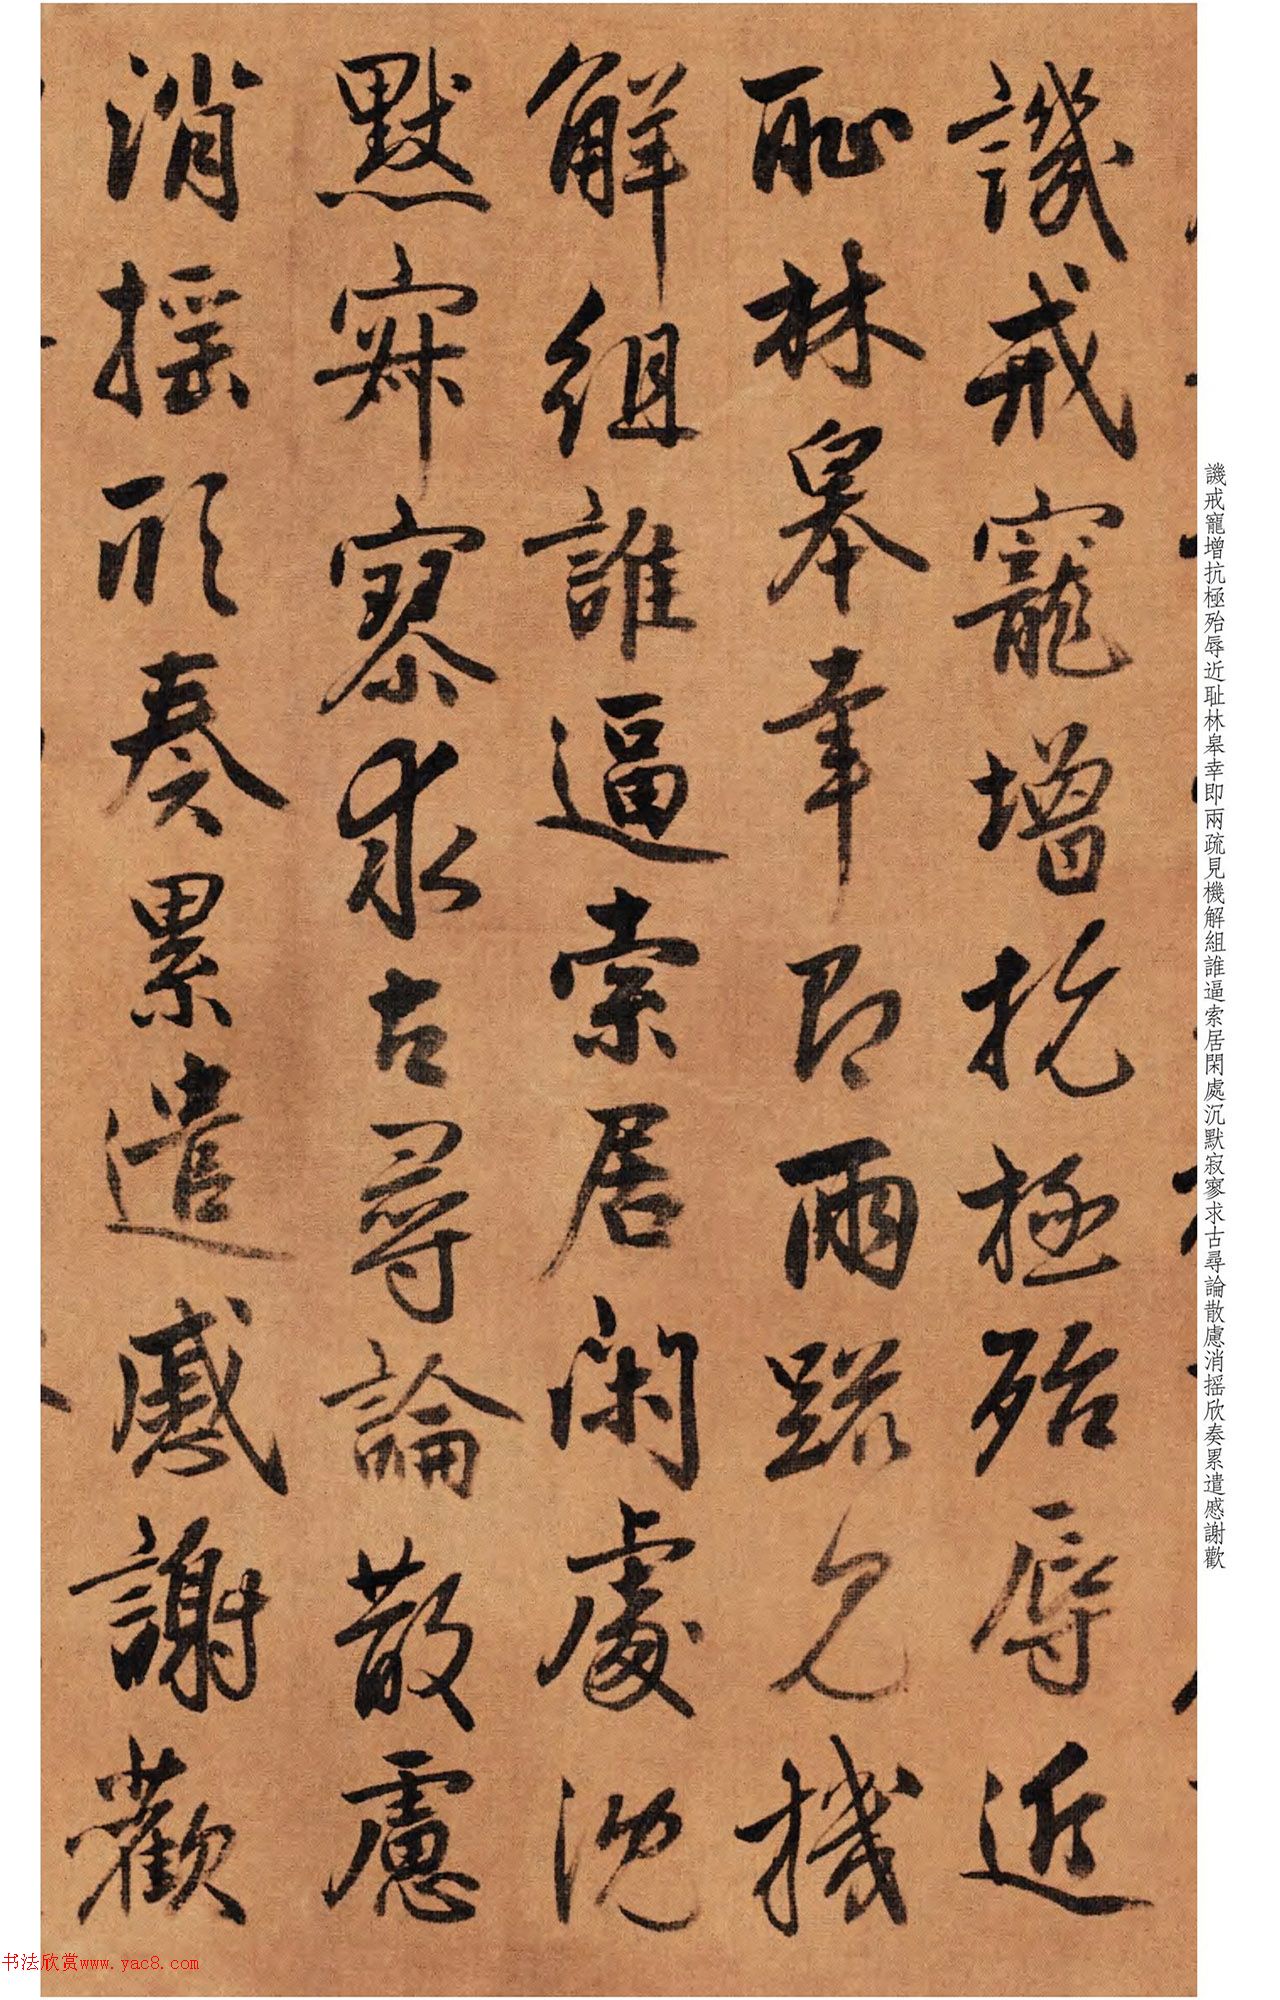 譏戒寵增抗極殆辱近
耻林皋幸即兩疏見機
解組誰逼索居閑處沉
默寂寥求古尋論散慮
消搖欣奏累遣慼謝歡
譏戒寵增抗極殆辱近耻林皋幸即兩疏見機解組誰逼索居閑處沉默寂寥求古尋論散慮消搖欣奏累遣慼謝歡
书法欣赏www.yac8.com